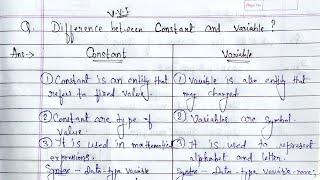 V.V.I
Q. Difference between Constant and variable?
Ans:→ Constant Variable
① Constant is an entity that
refers to fixed value.
② Constant are type of
value.
③ It is used in mathematical
expressions.
Syntax - Data-type variable
① Variable is also entity that
may changed.
② Variables are symbol.
③ It is used to represent
alphabet and letter.
Syntax - Data-type variable-name;